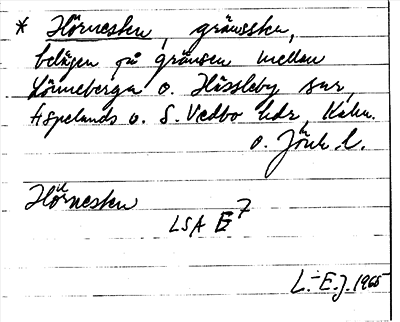 * Hörnesten, gränssten,
belägen på gränsen mellan
Lönneberga o. Hässleby snr,
Aspelands o. S. Vedbo hdr, Kalm.
o. Jönk. l.
Hörnesten
LSA E 7
L.-E. J. 1965